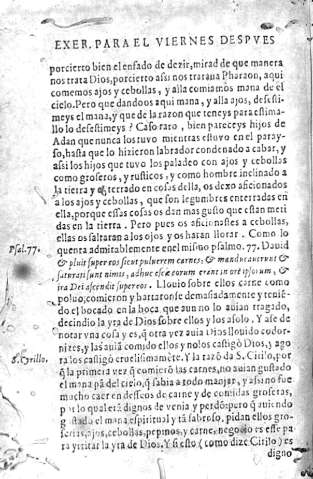 EXER. PARA EL VIERNES DESPVES
porcierto bien el enfado de dezir, mirad de que manera
nos trata Dios, porcierto assi nos trataua Pharaon, aqui
comemos ajos y cebollas, y alla comiamos mana de el
cielo. Pero que dandoos aqui mana, y alla ajos, desesti-
meys el mana, y que de la razon que teneys para estima-
llo lo desestimeys? Caso raro, bien pareceys hijos de
Adan que nunca los tuvo mientras estuvo en el paray-
so, hasta que lo hizieron labrador condenado a cabar, y
assi los hijos que tuvo los paladeo con ajos y cebollas
como groseros, y rusticos, y como hombre inclinado a
la tierra y enterrado en cosas della, os dexo aficionados
a los ajos y cebollas, que son legumbres enterradas en
ella, porque essas cosas os dan mas gusto que estan meti-
das en la tierra. Pero pues os aficionastes a cebollas,
ellas os saltaran a los ojos y os haran llorar. Como lo
Psal. 77. quenta admirablemente en el mismo psalmo. 77. Dauid
& pluit super eos sicut puluerem carnes; & manducauerunt &
saturati sunt nimis, adhuc escæ eorum erant in ore ipsorum, &
ira Dei ascendit super eos. Llouio sobre ellos carne como
poluo, comieron y hartaronse demasiadamente y tenié-
do el bocado en la boca que aun no lo auian tragado,
decindio la yra de Dios sobre ellos y los asolo. Y ase de
notar vna cosa y es, q̃ otra vez auia Dios llouido codor-
nizes, y las auiã comido ellos y no los castigò Dios, y ago
S. Cyrillo. ra los castigò cruelissimamēte. Y la razõ da S. Cirilo, por
q̃ la primera vez q̃ comierõ las carnes, no auian gustado
el mana pã del cielo, q̃ sabia a todo manjar, y assi no fue
mucho caer en desseos de carne y de comidas groseras,
por lo qual erã dignos de venia y perdõ: pero q̃ auiendo
gustado el mana espiritual y tã sabroso, pidan ellos gro-
serias, ajos, cebollas, pepinos, y carne, negocio es este pa-
ra yrritar la yra de Dios. Y si esto (como dize Cirilo) es
digno